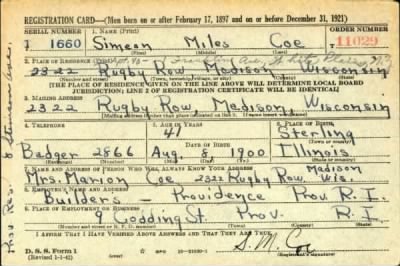 REGISTRATION CARD—(Men born on or after February 17, 1897 and on or before December 31, 1921)
SERIAL NUMBER 1. NAME (Print) ORDER NUMBER
T 1660 Simeon Miles Coe 11029
(First) (Middle) (Last)
2. PLACE OF RESIDENCE (Print)
2322 Rugby Row Madison Wisconsin
(Number and street) (Town, township, village, or city) (County) (State)
[THE PLACE OF RESIDENCE GIVEN ON THE LINE ABOVE WILL DETERMINE LOCAL BOARD
JURISDICTION; LINE 2 OF REGISTRATION CERTIFICATE WILL BE IDENTICAL]
3. MAILING ADDRESS
2322 Rugby Row, Madison, Wisconsin
[Mailing address if other than place indicated on line 2. If same insert word same]
4. TELEPHONE 5. AGE IN YEARS 6. PLACE OF BIRTH
41 Sterling
DATE OF BIRTH (Town or county)
Badger 2866 Aug. 8, 1900 Illinois
(Exchange) (Number) (Mo.) (Day) (Yr.) (State or country)
7. NAME AND ADDRESS OF PERSON WHO WILL ALWAYS KNOW YOUR ADDRESS
Mrs. Marion Coe 2322 Rugby Row, Madison Wis.
8. EMPLOYER'S NAME AND ADDRESS
Builders - Providence Prov R. I.
9. PLACE OF EMPLOYMENT OR BUSINESS
9 Codding St. Prov. R. I.
(Number and street or R. F. D. number) (Town) (County) (State)
I AFFIRM THAT I HAVE VERIFIED ABOVE ANSWERS AND THAT THEY ARE TRUE.
D. S. S. Form 1
(Revised 1-1-42) (over) S. M. Coe
(Registrant's signature)